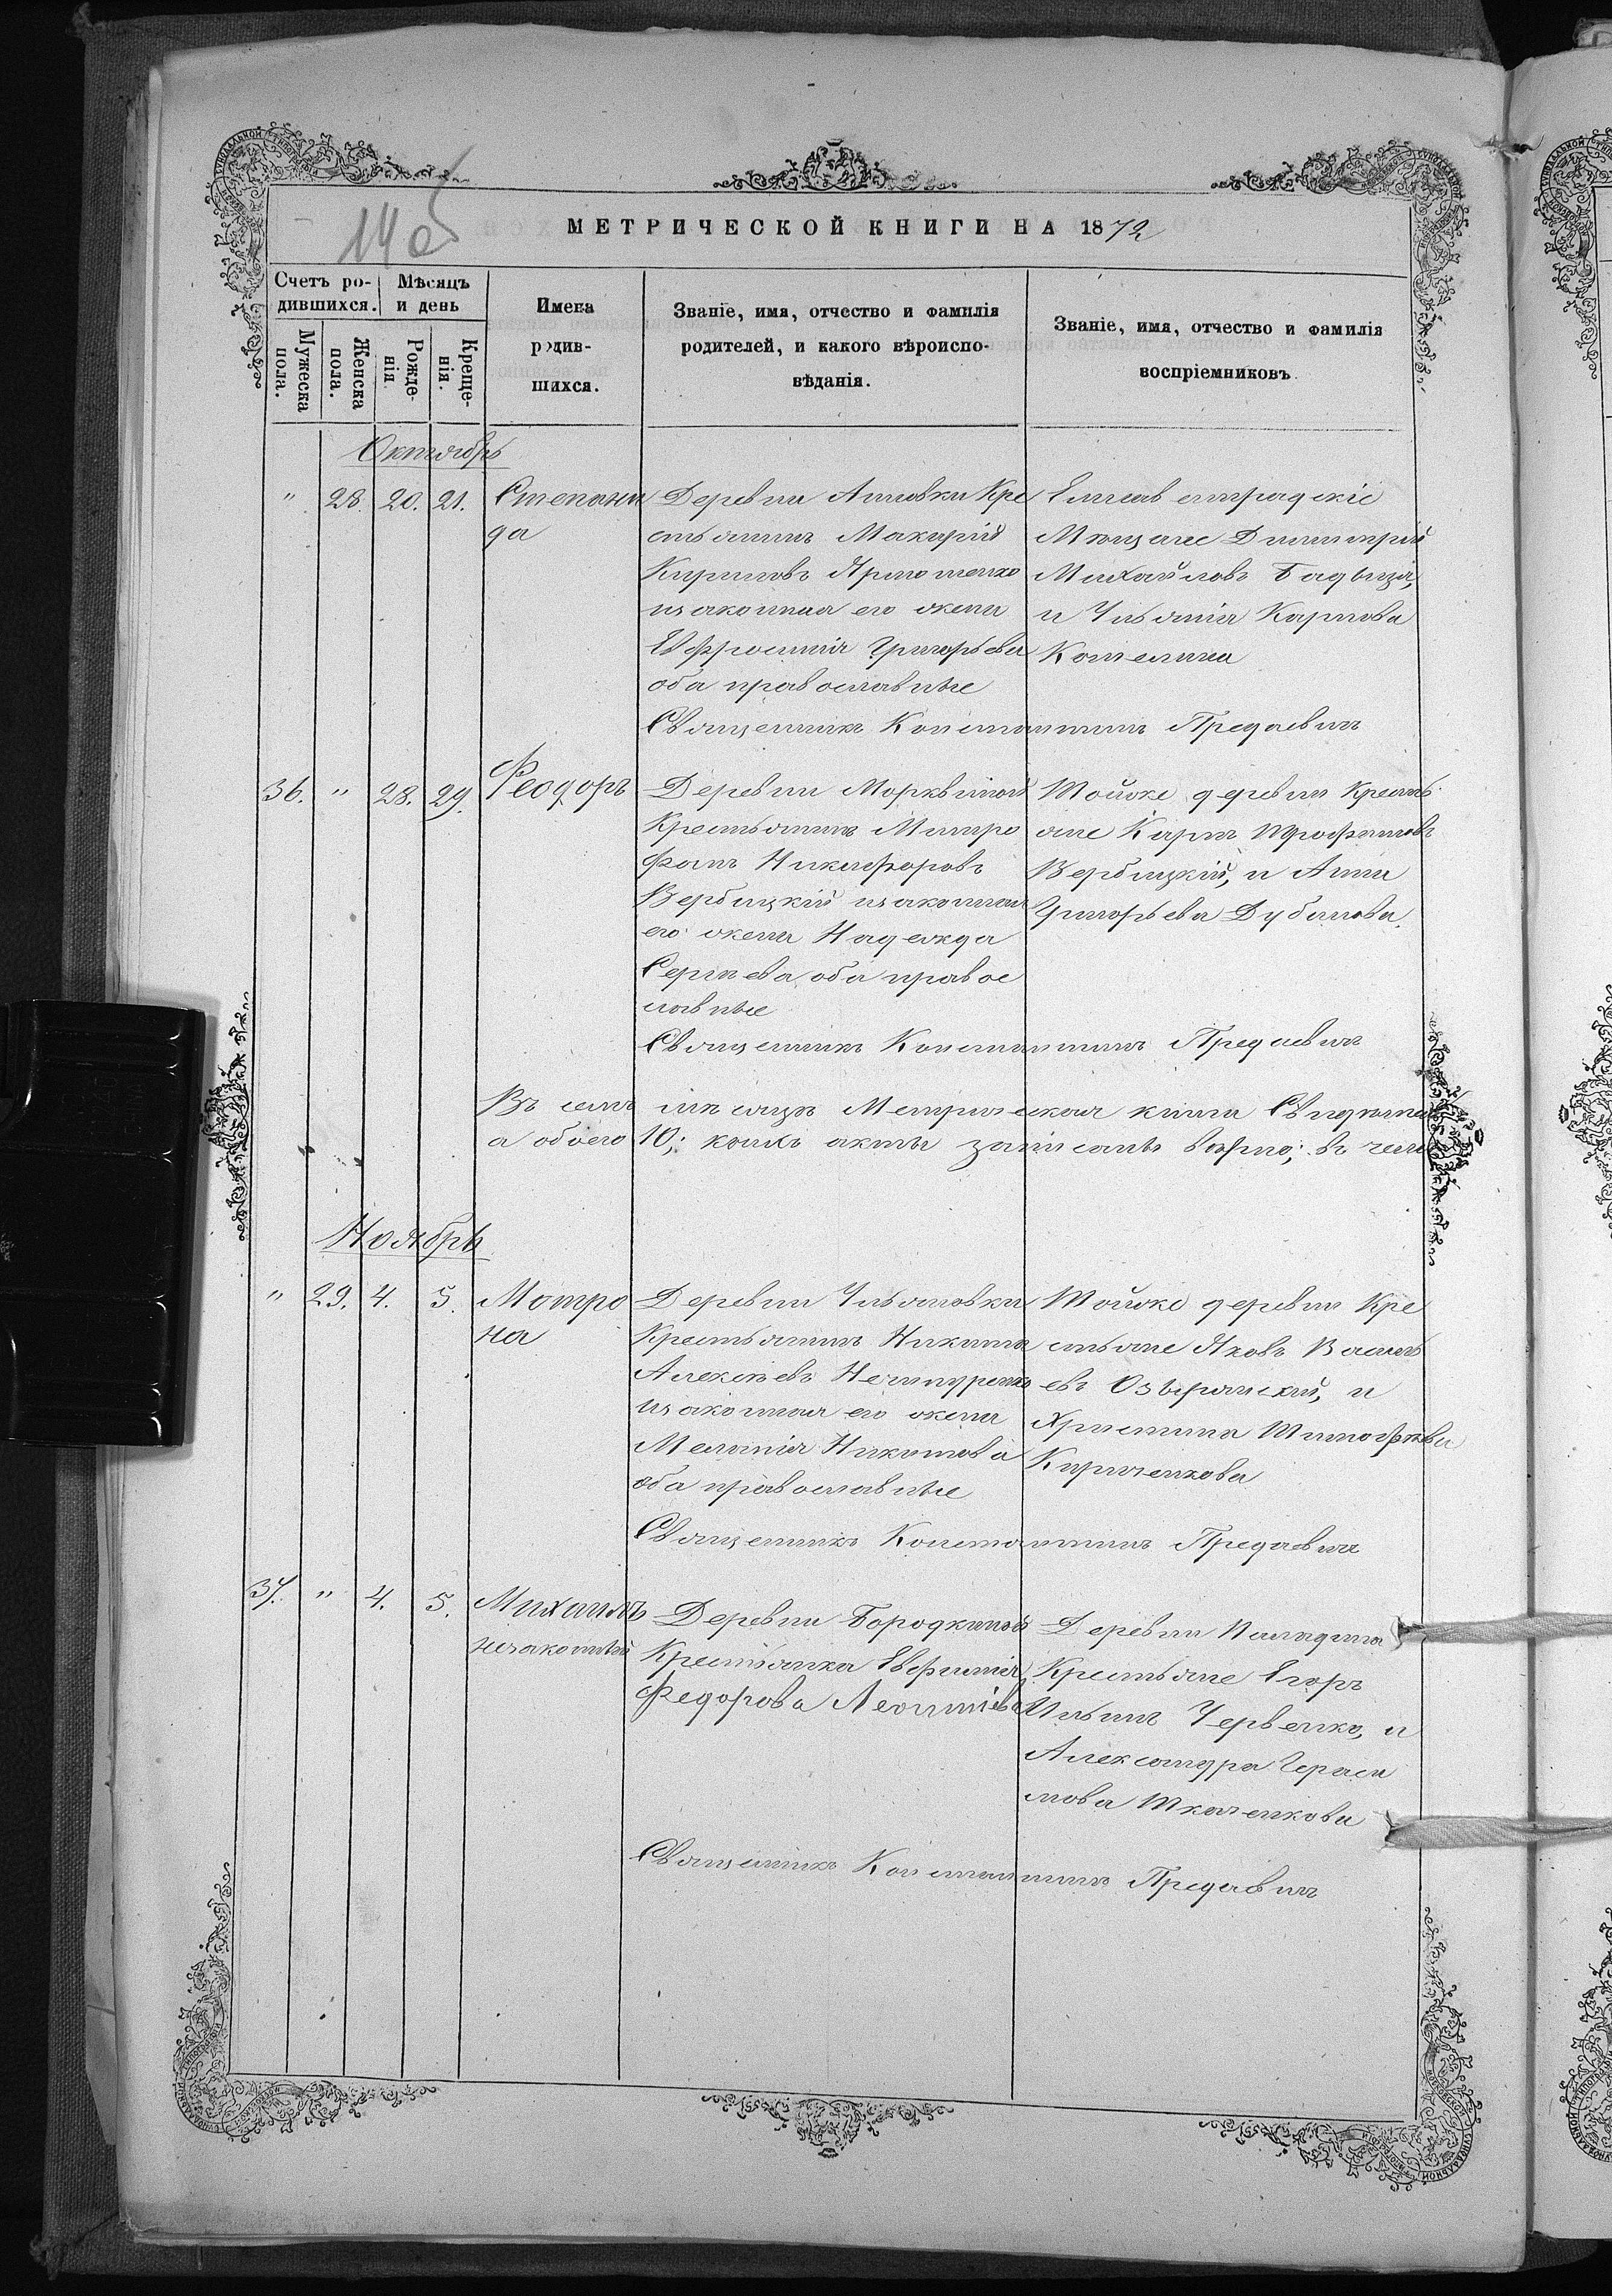 14 об
МЕТРИЧЕСКОЙ КНИГИ НА 1872
Счетъ родившихся.
Мѣсяцъ и день
Мужеска пола.
Женска пола.
Рожденія
Крещенія.
Имена
родив-
шихся.
Званіе, имя, отчество и фамилія
родителей, и какого вѣроиспо-
вѣданія.
Званіе, имя, отчество и фамилія
воспріемниковъ
Октябрь
" 28. 20. 21.
Степани
да
Деревни Анновки Кре
стьянинъ Макарій
Кириловъ Ярмотенко
и законная его жена
Евфросинія Григорьева
оба православные
Елисаветградскіе
Мѣщане Димитрій
Михайловъ
и Ульянія Карпова
Священникъ Константинъ Предаевичъ
36. " 28. 29.
Феодоръ
Деревни Морквиной
Крестьянинъ Митро
фанъ Никифоровъ
Вербицкій и законная
его жена Надежда
Сергѣева, оба правос
лавные
Тойже деревни Кресть
яне Карпъ Трофимовъ
Вербицкій, и Анна
Григорьева Дубалова
Священникъ Константинъ Предаевичъ
Въ семъ мѣсяцѣ Метрическая книга Свидѣтел
а обоего 10; коихъ акты записаны вѣрно; въ чем
Ноябрь
" 29. 4. 5.
Мотро
на
Деревни Ульяновки
Крестьянинъ Никита
Алексѣевъ
и законная его жена
Меланія Никитова
оба православные
Тойже деревни Кре
стьяне Яковъ Василь
евъ Озерянскій, и
Христина Тимофѣева
Кириченкова
Священникъ Константинъ Предаевичъ
37. " 4. 5.
Михаилъ
незаконный
Деревни Бородкиной
Крестьянка Евфимія
Федорова Леонтіева
Деревни
Крестьяне Егоръ
Ильинъ Червенко, и
Александра Гераси
мова Ткаченкова
Священникъ Константинъ Предаевичъ